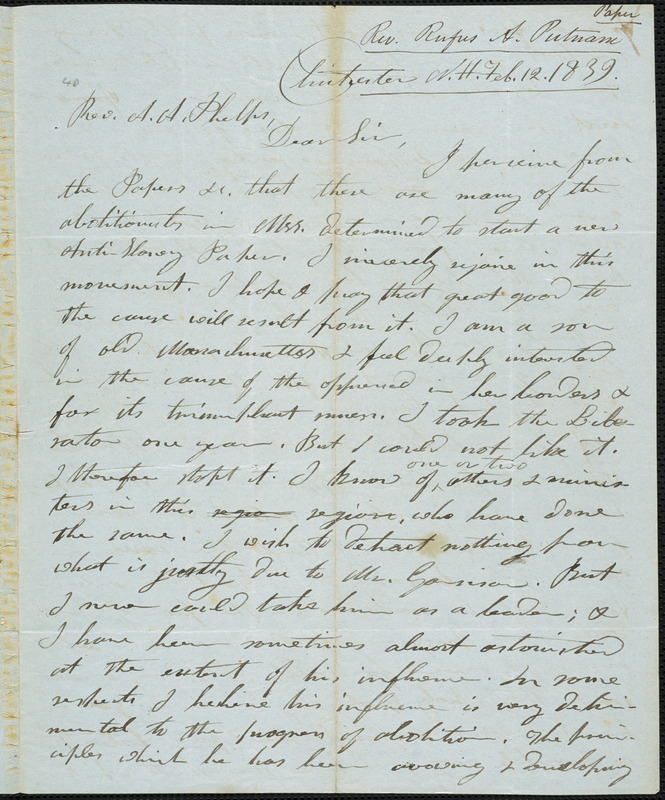 Paper
Rev. Rufus A. Putnam
Chichester N.H. Feb. 12. 1839.
40
Rev. A. A. Phelps,
Dear Sir,
I perceive from
the Papers &c. that there are many of the
abolitionists in Mss. determined to start a new
Anti-Slavery Paper. I sincerely rejoice in this
movement. I hope & pray that great good to
the cause will result from it. I am a son
of old Massachusetts & feel deeply interested
in the cause of the oppressed in her borders &
for its triumphant success. I took the Libe-
rator one year. But I could not like it.
I therefore stopt it. I know of, others & minis-
one or two
ters in this region region, who have done
the same. I wish to detract nothing from
what is justly due to Mr. Garrison. But
I never could take him as a leader; &
I have been sometimes almost astonished
at the extent of his influence. In some
respects I believe his influence is very detri-
mental to the progress of abolition. The prin-
ciples which he has been avowing & developing